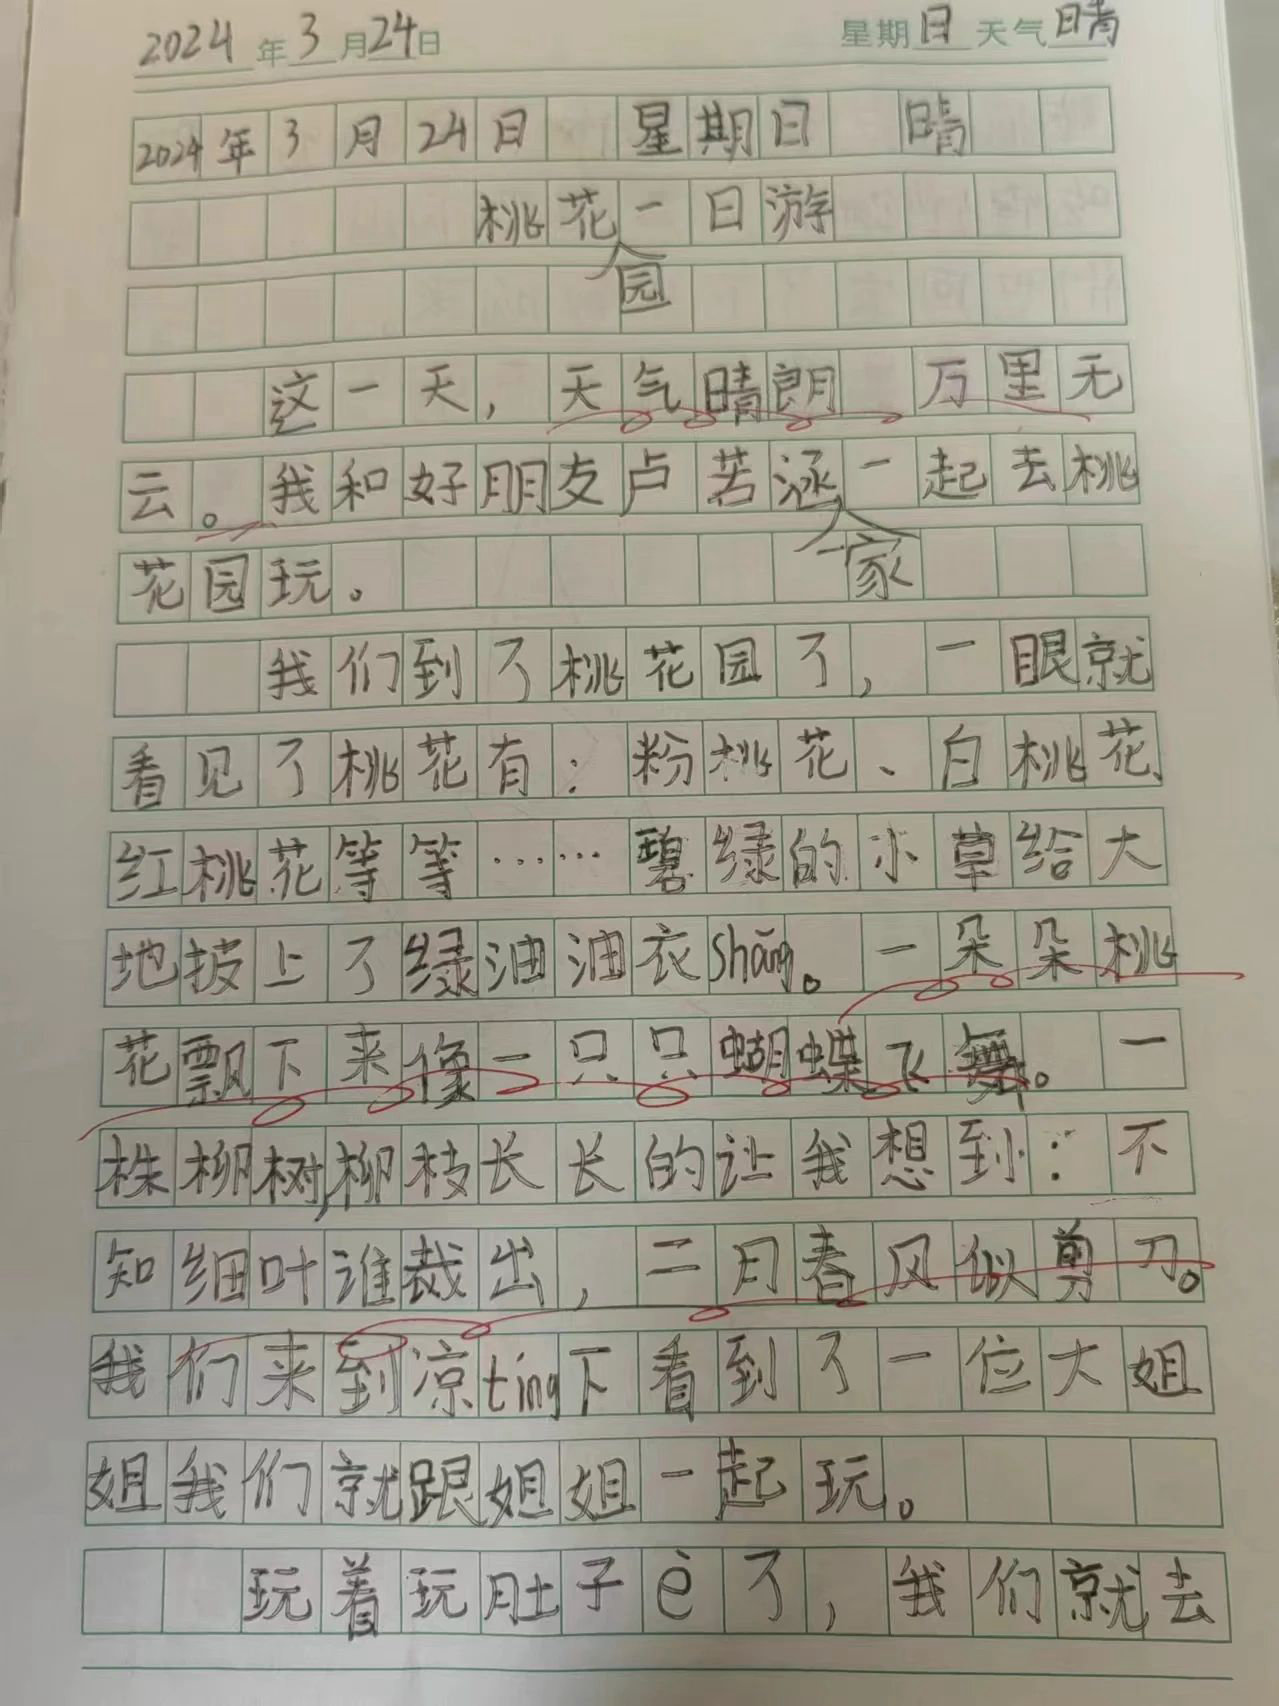 2024年3月24日 星期日 天气晴
2024年3月24日 星期日 晴
桃花园一日游
这一天，天气晴朗 万里无
云。我和好朋友卢若涵一家一起去桃
花园玩。
我们到了桃花园了，一眼就
看见了桃花有：粉桃花、白桃花、
红桃花等等……碧绿的小草给大
地披上了绿油油衣shāng。一朵朵桃
花飘下来像一只只蝴蝶飞舞。一
株柳树，柳枝长长的让我想到：不
知细叶谁裁出，二月春风似剪刀。
我们来到凉tíng下看到了一位大姐
姐我们就跟姐姐一起玩。
玩着玩肚子è了，我们就去